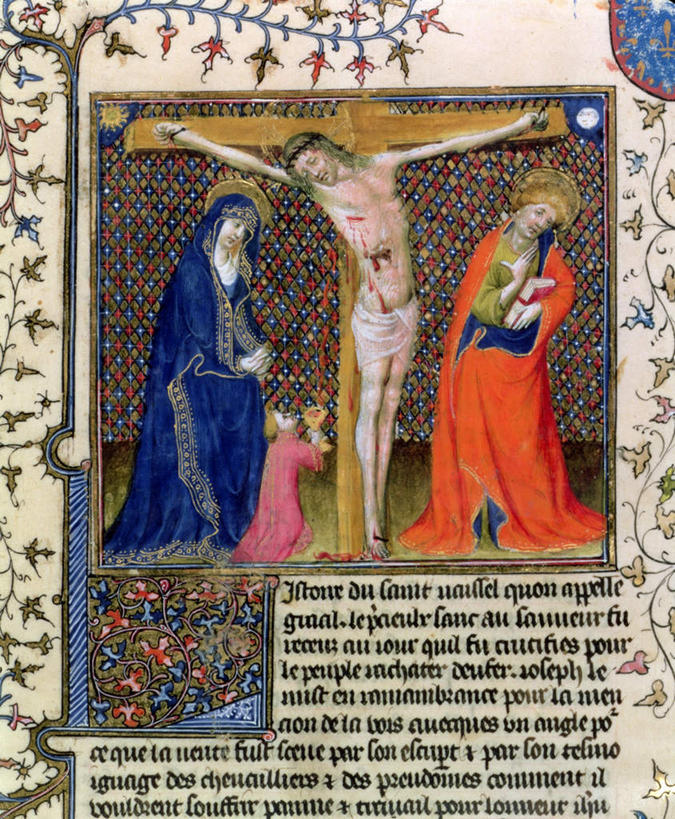 Istoire du saint uaissel quon appelle
graal. le p̄cieulx sanc au sauueur fu
receuz au iour quil fu crucifies pour
le peuple rachater denfer. ioseph le
mist en ramambrance pour la men
cion de la vois auecques vn angle po᷑
ce que la uerite fust sceue par son escript ⁊ par son tesmo
ignage des cheualliers ⁊ des preudōmes comment il
vouldrent souffrir painne ⁊ trauail pour lonneur ihū